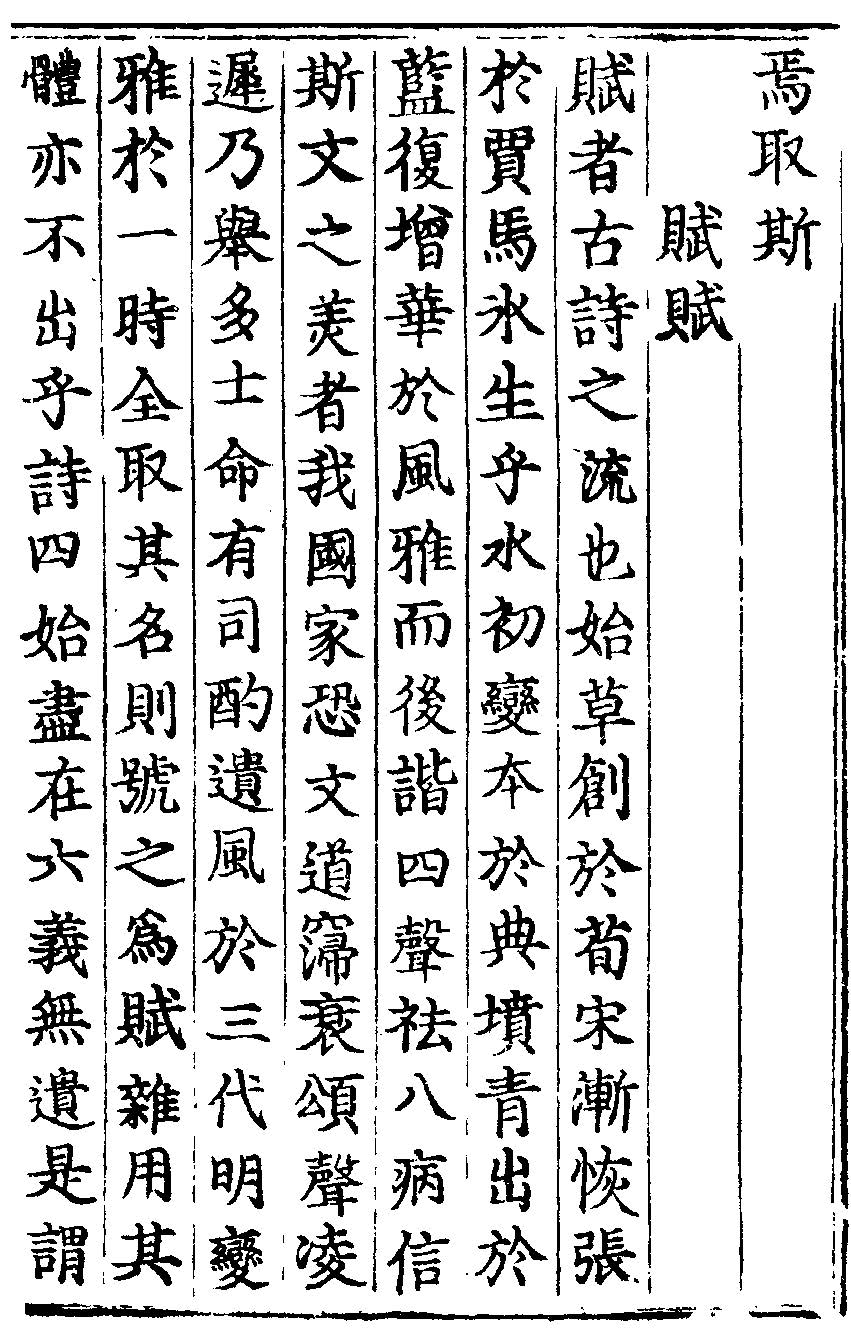 焉取斯
賦賦
賦者古詩之流也始草創於荀宋漸恢張
於賈馬氷生乎水初變夲於典墳青出於
藍復增華於風雅而後諧四聲祛八病信
斯文之美者我國家恐文道寖衰頌聲凌
遲乃舉多士命有司酌遺風於三代明變
雅於一時全取其名則號之爲賦雜用其
體亦不出乎詩四始盡在六義無遺是謂